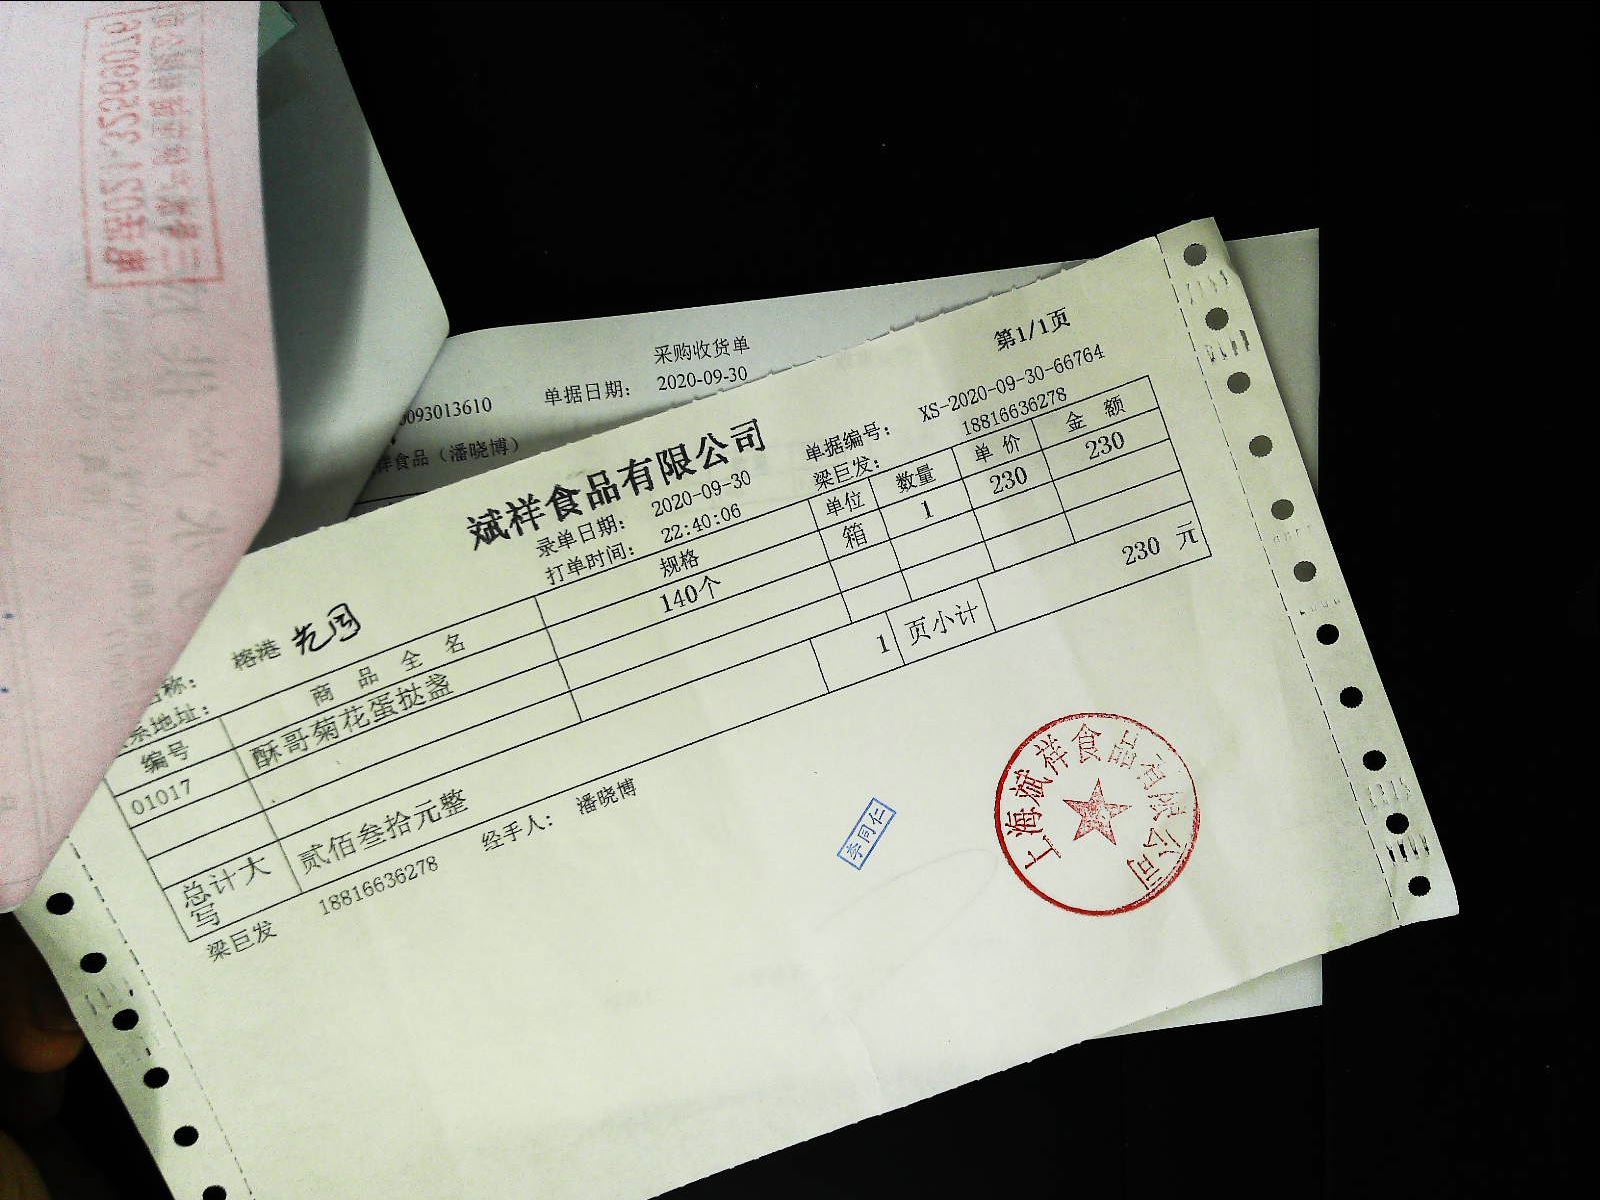 电话021-32569076
采购收货单
0093013610 单据日期: 2020-09-30
祥食品（潘晓博）
第1/1页
斌祥食品有限公司
单据编号: XS-2020-09-30-66764
录单日期: 2020-09-30
梁巨发: 18816636278
打单时间: 22:40:06
名称: 榕港
系地址:
编号 商品全名 规格 单位 数量 单价 金额
01017 酥哥菊花蛋挞盏 140个 箱 1 230 230
总计大写 贰佰叁拾元整 1 页小计 230 元
梁巨发 18816636278 经手人: 潘晓博
李同仁
上海斌祥食品有限公司